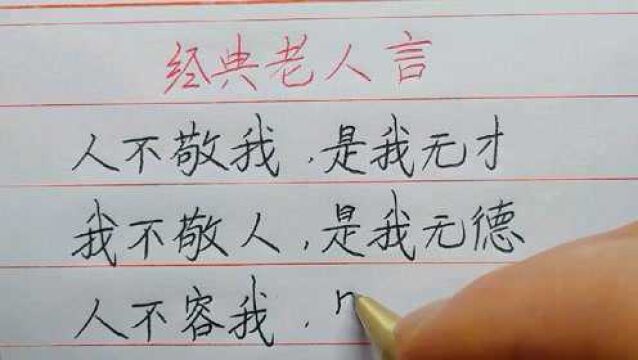 经典老人言
人不敬我，是我无才
我不敬人，是我无德
人不容我，